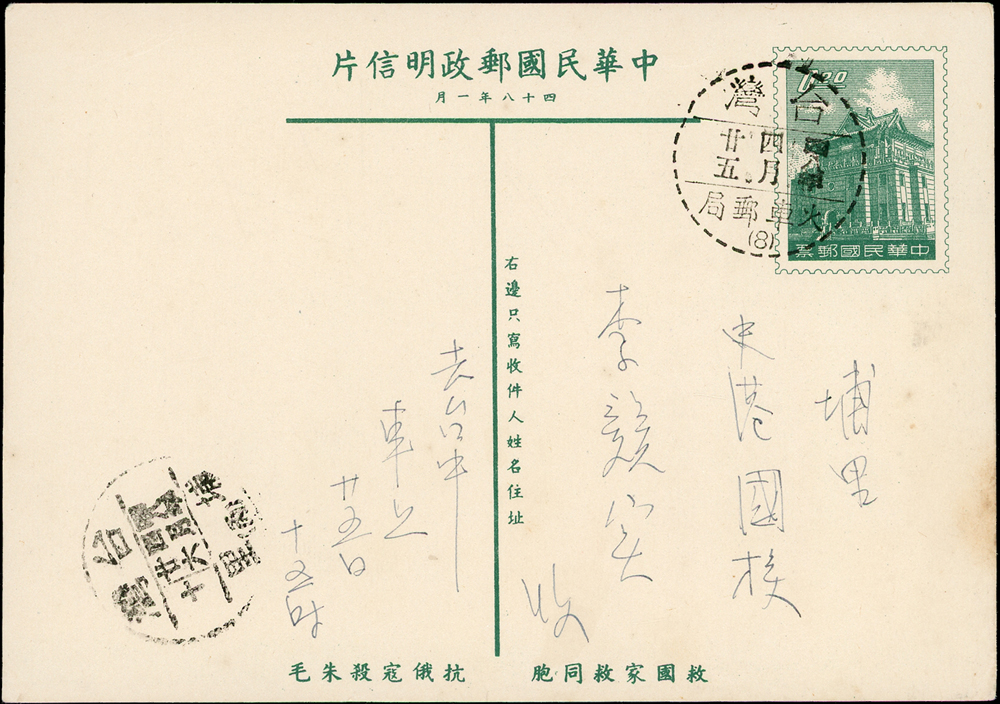 中華民國郵政明信片
四十八年一月
台灣
四月
廿五
火車郵局
(8)
中華民國郵票
右邊只寫收件人姓名住址
埔里
史港國校
李競
收
去台中
車上
廿五日
十五時
台灣
四
廿六
十
埔里
救國家救同胞
抗俄寇殺朱毛